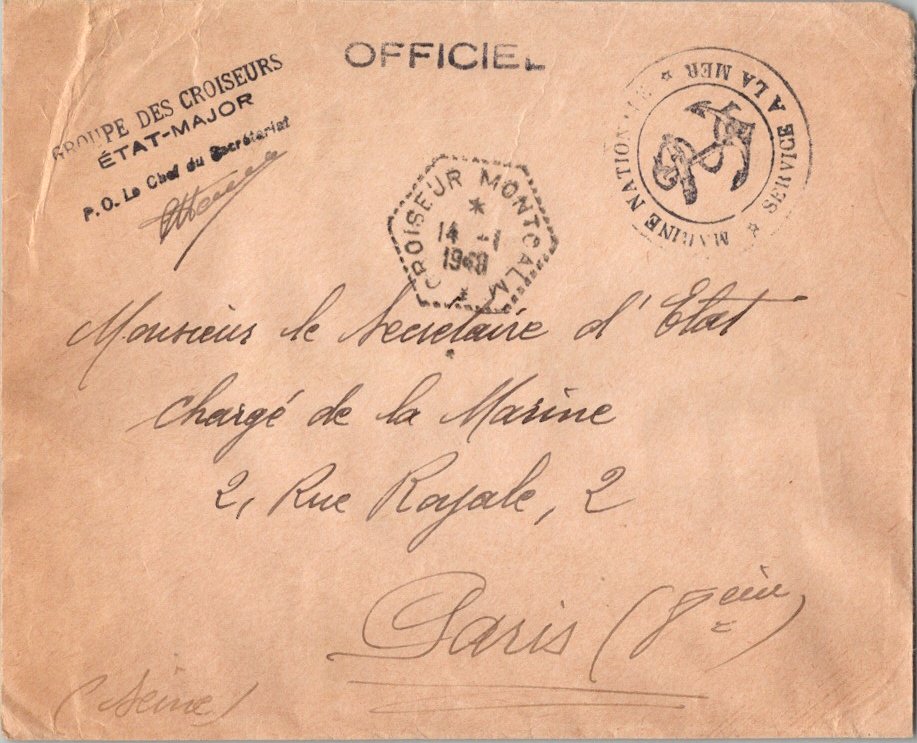 OFFICIEL
GROUPE DES CROISEURS
ÉTAT-MAJOR
P.O. Le Chef du Secrétariat
MARINE NATIONALE ★ SERVICE A LA MER ★
CROISEUR MONTCALM
14 -1
1948
Monsieur le Secrétaire d'Etat
chargé de la Marine
2, Rue Royale, 2
Paris (8eme)
(Seine)